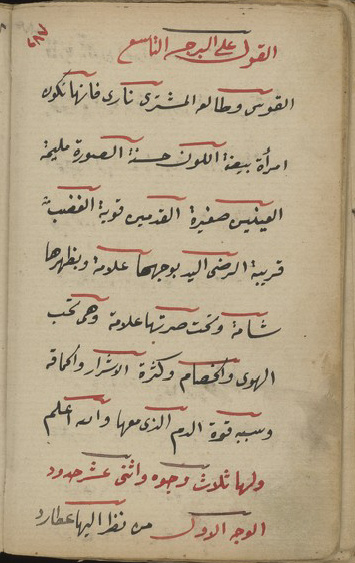 ٦٨٧
القول على البرج التاسع
القوس وطالعه المشترى نارى فانها تكون
امرأة بيضة اللون حسنة الصورة مليحة
العينين صغيرة القدمين قوية الغضب
قريبة الرضى اليد بوجهها علامة وبظهرها
شامة وتحت صرتها علامة وهى تحب
الهوى والخصام وكثرة الاشرار والحماقة
وسببه قوة الدم الذى معها والله اعلم
ولها ثلاث وجوه واثنى عشر حدود
الوجه الاول من نظر اليها عطارد